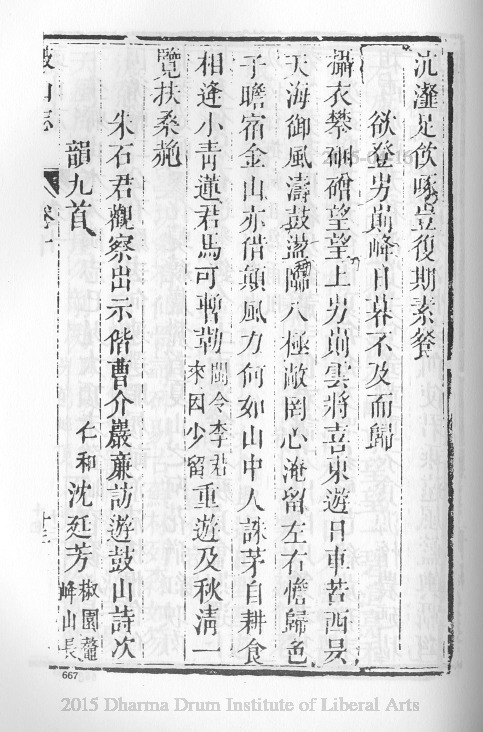 沆瀣足飲啄豈復期素餐
欲登屴崱峰日暮不及而歸
攝衣攀磵磴望望上屴崱雲將喜東遊日車苦西昃
天海御風濤鼓盪臨八極敞罔心淹留左右憺歸色
子瞻宿金山亦借顛風力何如山中人誅茅自耕食
相逢小青蓮君馬可暫勒閩令李君來因少留重遊及秋淸一
覽扶桑赩
朱石君觀察出示偕曹介巖廉訪遊鼓山詩次
韻九首 仁和沈廷芳椒園鼇峰山長
鼓山志 卷十 十三
667
2015 Dharma Drum Institute of Liberal Arts